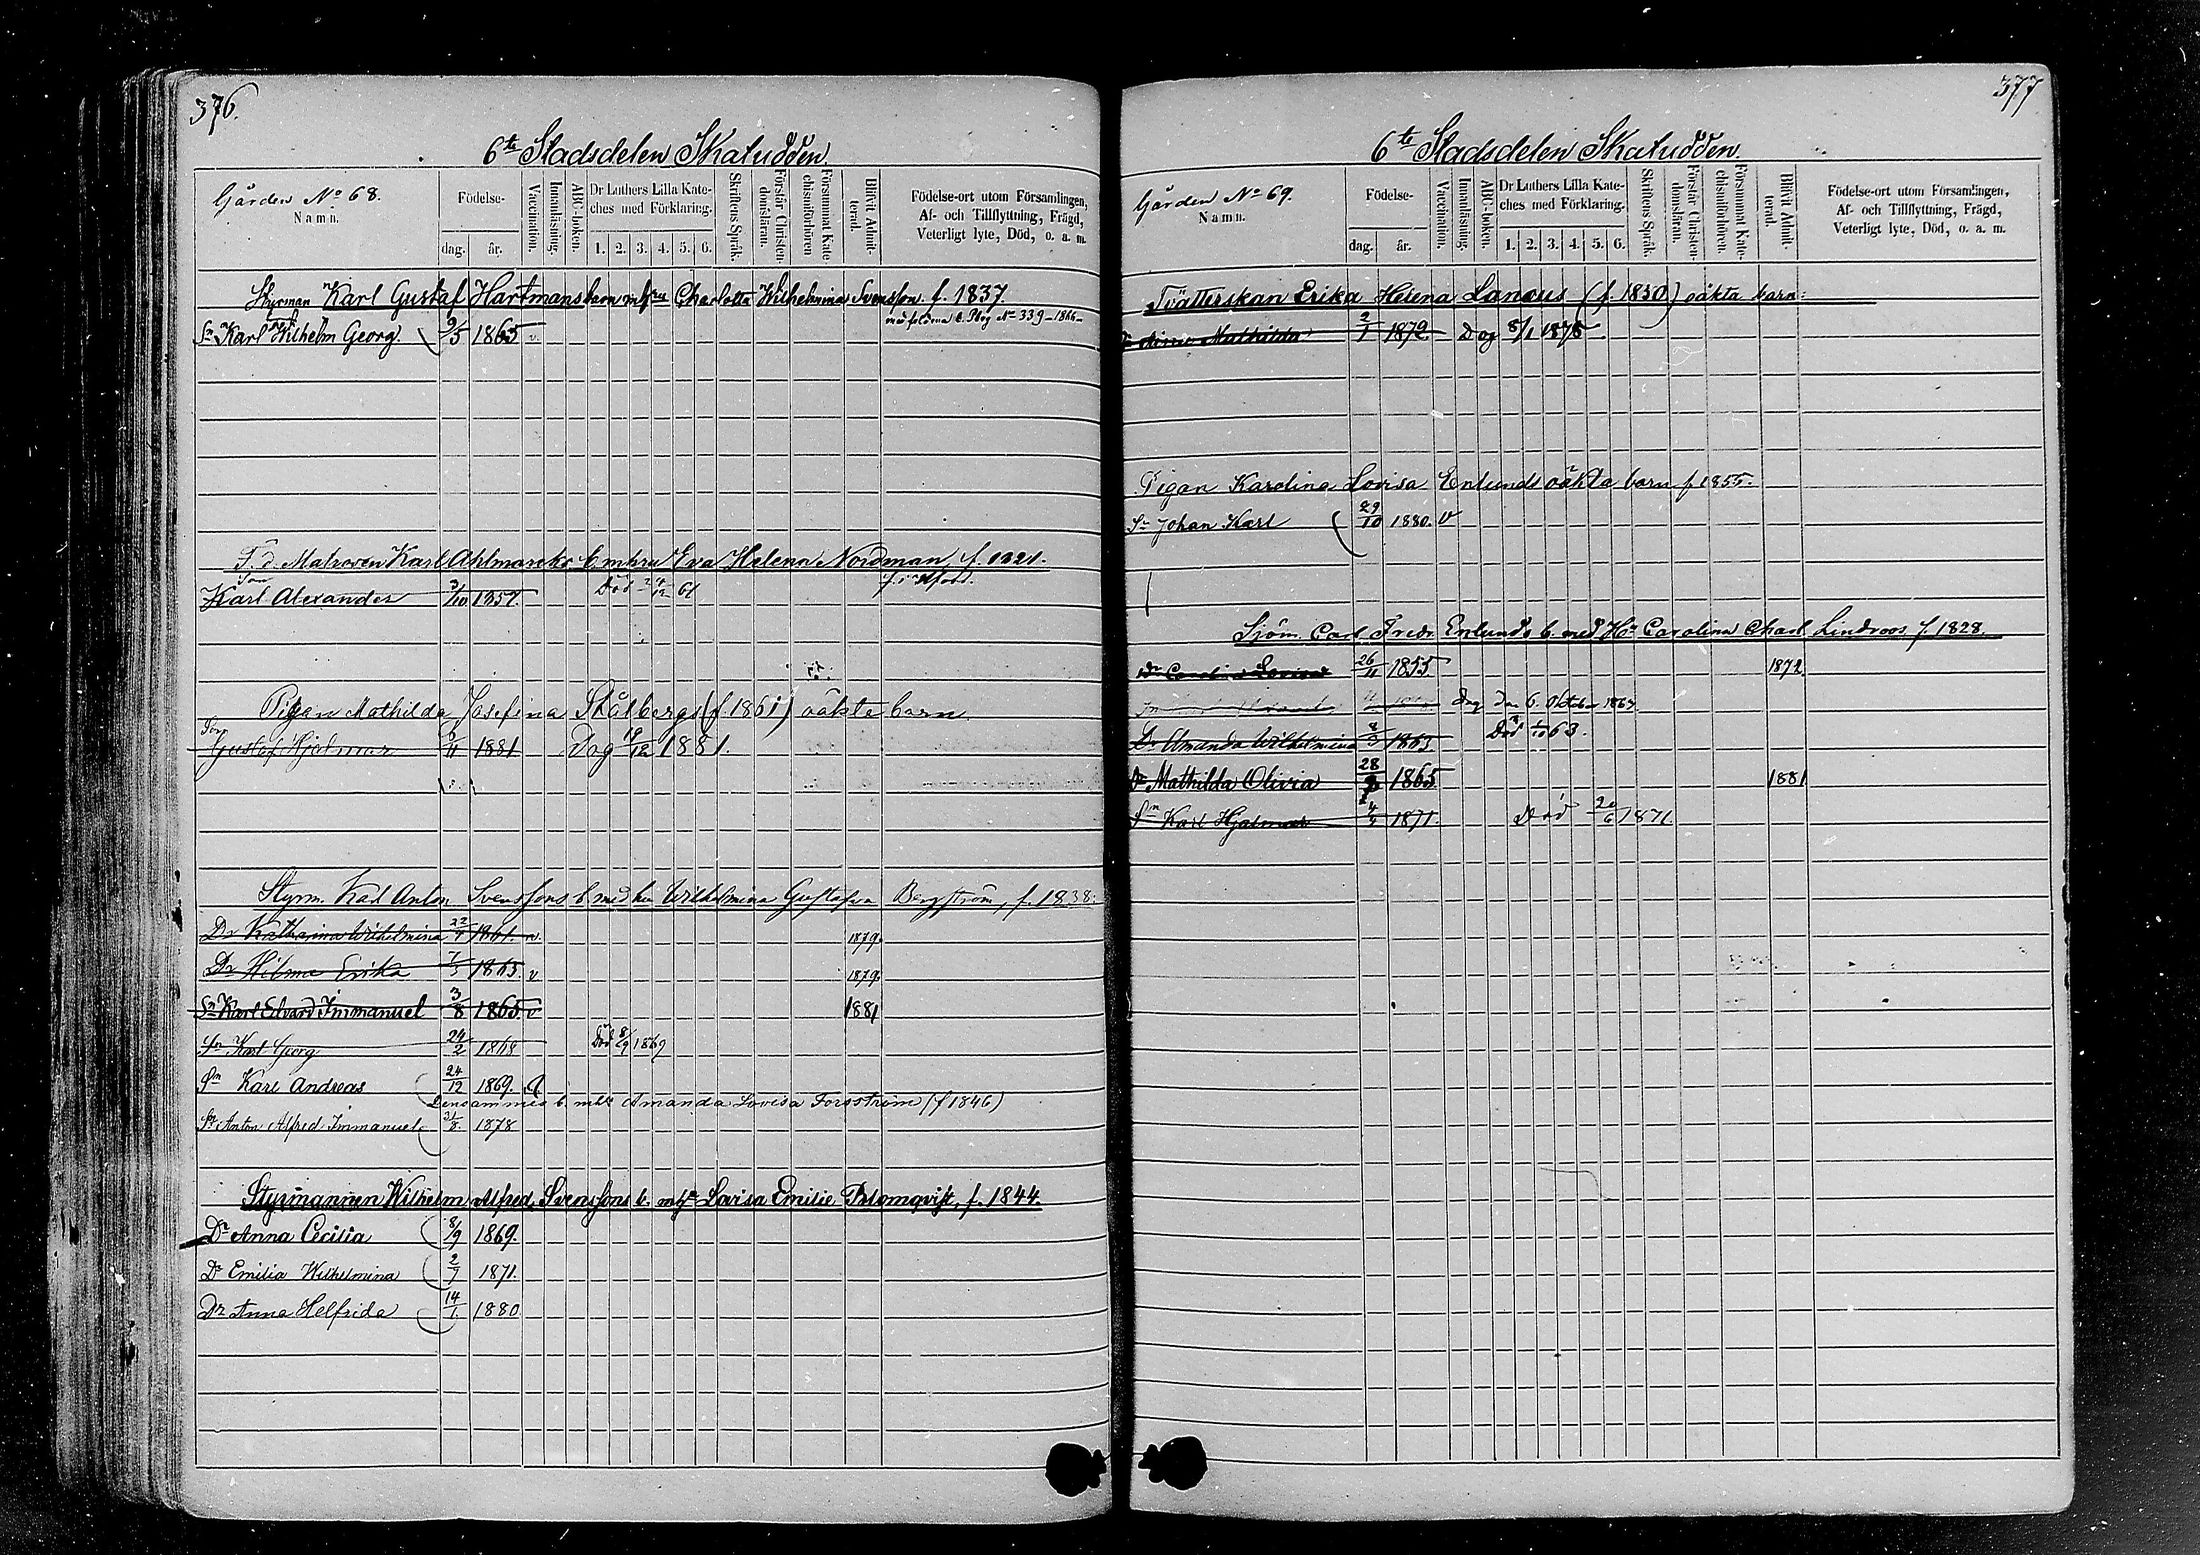 376.
6te Stadsdelen Skatudden.
Gården No 68.
Namn.
Födelse-
dag. år.
Vaccination.
Innanläsning.
ABC-boken.
Dr Luthers Lilla Kateches med Förklaring.
1. 2. 3. 4. 5. 6.
Skriftens Språk.
Förstår Christendomsläran.
Försummat Katechismiförhören
Blifvit Admitterad.
Födelse-ort utom Församlingen,
Af- och Tillflyttning, Frägd,
Veterligt lyte, Död, o. a. m.
Styrman Karl Gustaf Hartmans barn mhru Charlotta Wilhelmina Svensson f. 1837.
No 339-1866-
Sn Karl Wilhelm Georg. 9/5 1865 v.
F. d. Matrosen Karl Ahlmarcks b mhru Eva Helena Nordman f. 1821.
Son
Karl Alexander 3/10 1857. Död 24/12 61
Pigan Mathilda Josefina Stålbergs (f. 1861) oäkta barn
Son
Gustaf Hjalmar 9/11 1881 Dog 19/12 1881.
Styrm. Karl Anton Svenssons b med hu Wilhelmina Gustafva Bergström, f. 1838:
Dr Katharina Wilhelmina 22/4 1861. v. 1879.
Dr Hilma Erika 7/5 1863. v 1879.
Sn Karl Edvard Immanuel 3/8 1865 v 1881
Sn Karl Georg 24/2 1868 Död 8/9 1869
Sn Karl Andreas 24/12 1869.
Densammes b. mhr Amanda Lovisa Forsström (f 1846)
Sn Anton Alfred Immanuel 31/8. 1878
Styrmannen Wilhelm Alfred Svenssons b. mhu Lovisa Emilie Blomqvist, f. 1844.
Dr Anna Cecilia 8/9 1869.
Dr Emilia Wilhelmina 2/7 1871.
Dr Anna Helfrida 14/1. 1880
377
6te Stadsdelen Skatudden.
Gården No 69.
Namn.
Födelse-
dag. år.
Vaccination.
Innanläsning.
ABC-boken.
Dr Luthers Lilla Kateches med Förklaring.
1. 2. 3. 4. 5. 6.
Skriftens Språk.
Förstår Christendomsläran.
Försummat Katechismiförhören.
Blifvit Admitterad.
Födelse-ort utom Församlingen,
Af- och Tillflyttning, Frägd,
Veterligt lyte, Död, o. a. m.
Tvätterskan Erika Helena Lanaus (f. 1830) oäkta barn:
Mathilda 2/1 1872. Dog 8/1 1875.
Pigan Karolina Lovisa Enlunds oäkta barn f 1855.
Sn Johan Karl 29/10 1880. v
Sjöm. Carl Fredr. Enlunds b. med Hu Carolina Charl Lindroos f. 1828.
Dr Carolina Lovisa 26/11 1855 1872.
Dog den 6. Oktober
Dr Amanda Wilhelmina 1863 Död 1/10 63.
Dr Mathilda Olivia 28 1865 1881
Sn Karl Hjalmar 1871. Död 20/6 1871.